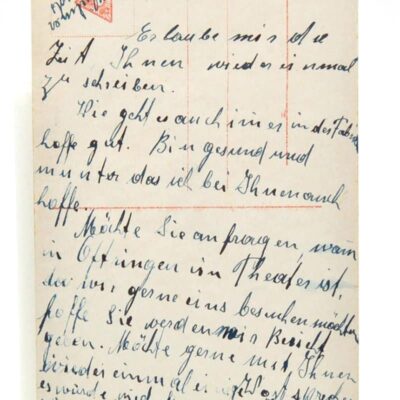 Erlaube mir die
Zeit, Ihnen wieder einmal
zu schreiben.
Wie geht es auch immer in der Fabrik
hoffe gut. Bin gesund und
munter das ich bei Ihnen auch
hoffe.
Möchte Sie anfragen, wann
in Oftringen im Theater ist,
da wir gerne eins besuchen möchten
hoffe Sie werden mir Bericht
geben. Möchte gerne mit Ihnen
wieder einmal ein
es würde